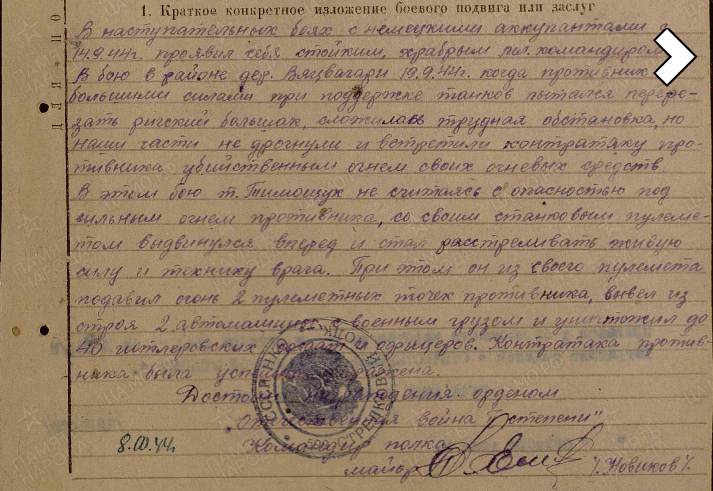 1. Краткое конкретное изложение боевого подвига или заслуг
В наступательных боях с немецкими аккупантами с
14.9.44г. проявил себя стойким, храбрым командиром
В бою в районе дер. Вяцвагари 19.9.44г. когда противник
большими силами при поддержке танков пытался перере-
зать рижский большак, сложилась трудная обстановка, но
наши части не дрогнули и встретили контратаку про-
тивника убийственным огнем своих огневых средств.
В этом бою т. Тимощук не считаясь с опасностью под
сильным огнем противника, со своим станковым пулеме-
том выдвинулся вперед и стал расстреливать живую
силу и технику врага. При этом он из своего пулемета
подавил огонь 2 пулеметных точек противника, вывел из
строя 2 автомашины с военным грузом и уничтожил до
40 гитлеровских солдат и офицеров. Контратака против-
ника была успешно отражена.
Достоин награждения орденом
„Отечественная война II степени"
8.10.44г. Командир полка
майор /Новиков/.